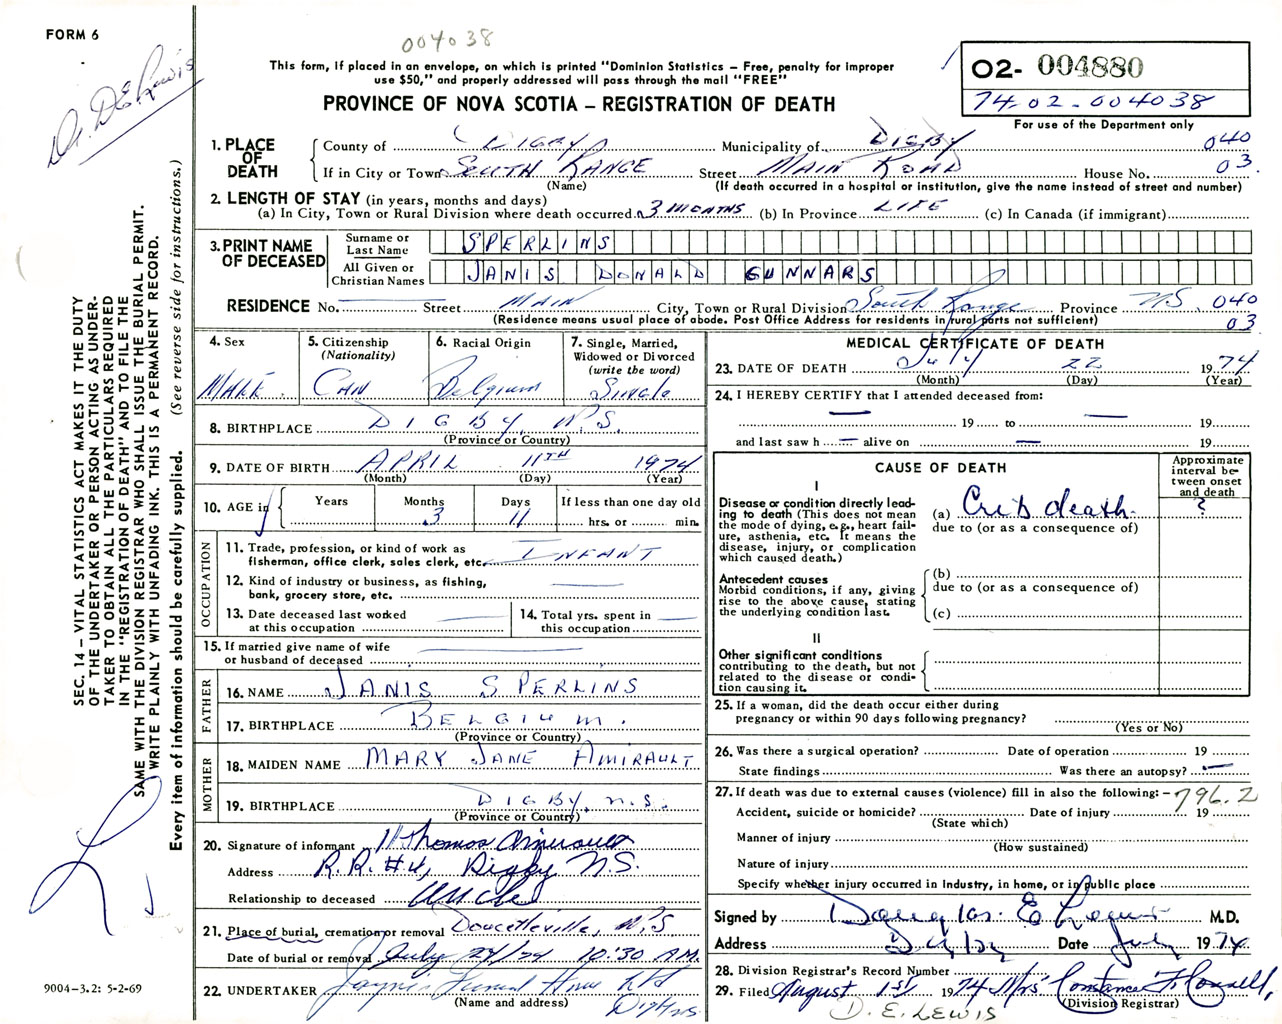 FORM 6
004038
Dr. D E Lewis
This form, if placed in an envelope, on which is printed "Dominion Statistics – Free, penalty for improper
use $50," and properly addressed will pass through the mail "FREE"
PROVINCE OF NOVA SCOTIA – REGISTRATION OF DEATH
O2- 004880
74-02-004038
For use of the Department only
1. PLACE OF DEATH
County of DIGBY Municipality of DIGBY 040
If in City or Town SOUTH RANGE Street MAIN ROAD House No. 03
(Name) (If death occurred in a hospital or institution, give the name instead of street and number)
2. LENGTH OF STAY (in years, months and days)
(a) In City, Town or Rural Division where death occurred 3 MONTHS (b) In Province LIFE (c) In Canada (if immigrant)
3. PRINT NAME OF DECEASED
Surname or Last Name SPERLINS
All Given or Christian Names JANIS DONALD GUNNARS
RESIDENCE No. Street MAIN City, Town or Rural Division South Range Province N.S. 040
(Residence means usual place of abode. Post Office Address for residents in rural parts not sufficient) 03
4. Sex MALE
5. Citizenship (Nationality) CAN
6. Racial Origin Belgium
7. Single, Married, Widowed or Divorced (write the word) Single
8. BIRTHPLACE DIGBY, N.S.
(Province or Country)
9. DATE OF BIRTH APRIL 11TH 1974
(Month) (Day) (Year)
10. AGE in Years Months 3 Days 11 If less than one day old hrs. or min.
OCCUPATION
11. Trade, profession, or kind of work as
fisherman, office clerk, sales clerk, etc. INFANT
12. Kind of industry or business, as fishing,
bank, grocery store, etc.
13. Date deceased last worked
at this occupation
14. Total yrs. spent in
this occupation
15. If married give name of wife
or husband of deceased
FATHER
16. NAME JANIS SPERLINS
17. BIRTHPLACE BELGIUM.
(Province or Country)
MOTHER
18. MAIDEN NAME MARY JANE AMIRAULT
19. BIRTHPLACE DIGBY, N.S.
(Province or Country)
20. Signature of informant Thomas Amirault
Address R.R. #4, Digby N.S.
Relationship to deceased Uncle
21. Place of burial, cremation or removal Doucetteville, N.S
Date of burial or removal July 24/74 10:30 A.M.
22. UNDERTAKER Jaynes Funeral Home Ltd
(Name and address) Digby NS
MEDICAL CERTIFICATE OF DEATH
23. DATE OF DEATH July 22 1974
(Month) (Day) (Year)
24. I HEREBY CERTIFY that I attended deceased from:
19 to 19
and last saw h alive on 19
CAUSE OF DEATH
Approximate interval between onset and death
I
Disease or condition directly leading
to death (This does not mean
the mode of dying, e.g., heart failure,
asthenia, etc. It means the
disease, injury, or complication
which caused death.)
(a) Crib death. ?
due to (or as a consequence of)
Antecedent causes
Morbid conditions, if any, giving
rise to the above cause, stating
the underlying condition last.
(b)
due to (or as a consequence of)
(c)
II
Other significant conditions
contributing to the death, but not
related to the disease or condition
causing it.
25. If a woman, did the death occur either during
pregnancy or within 90 days following pregnancy?
(Yes or No)
26. Was there a surgical operation? Date of operation 19
State findings Was there an autopsy?
27. If death was due to external causes (violence) fill in also the following: – 796.2
Accident, suicide or homicide? Date of injury 19
(State which)
Manner of injury
(How sustained)
Nature of injury
Specify whether injury occurred in industry, in home, or in public place
Signed by Douglas E Lewis M.D.
Address Digby Date July 1974
28. Division Registrar's Record Number
29. Filed August 1st 1974 Mrs Constance F. Connell,
(Division Registrar)
D. E. LEWIS
SEC. 14 – VITAL STATISTICS ACT MAKES IT THE DUTY
OF THE UNDERTAKER OR PERSON ACTING AS UNDER-
TAKER TO OBTAIN ALL THE PARTICULARS REQUIRED
IN THE "REGISTRATION OF DEATH" AND TO FILE THE
SAME WITH THE DIVISION REGISTRAR WHO SHALL ISSUE THE BURIAL PERMIT.
WRITE PLAINLY WITH UNFADING INK. THIS IS A PERMANENT RECORD.
Every item of information should be carefully supplied. (See reverse side for instructions.)
9004-3.2: 5-2-69